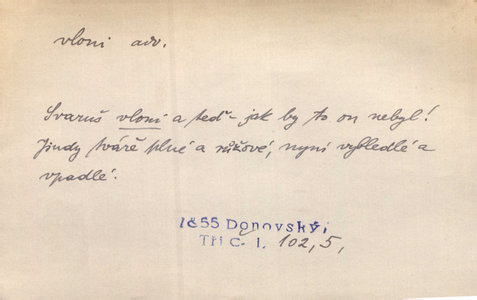 vloni adv.
Svaruš vloni a teď - jak by to on nebyl!
Jindy tváře plné a růžové, nyní vybledlé a
vpadlé.
1855 Donovský,
Tři C- I. 102,5,